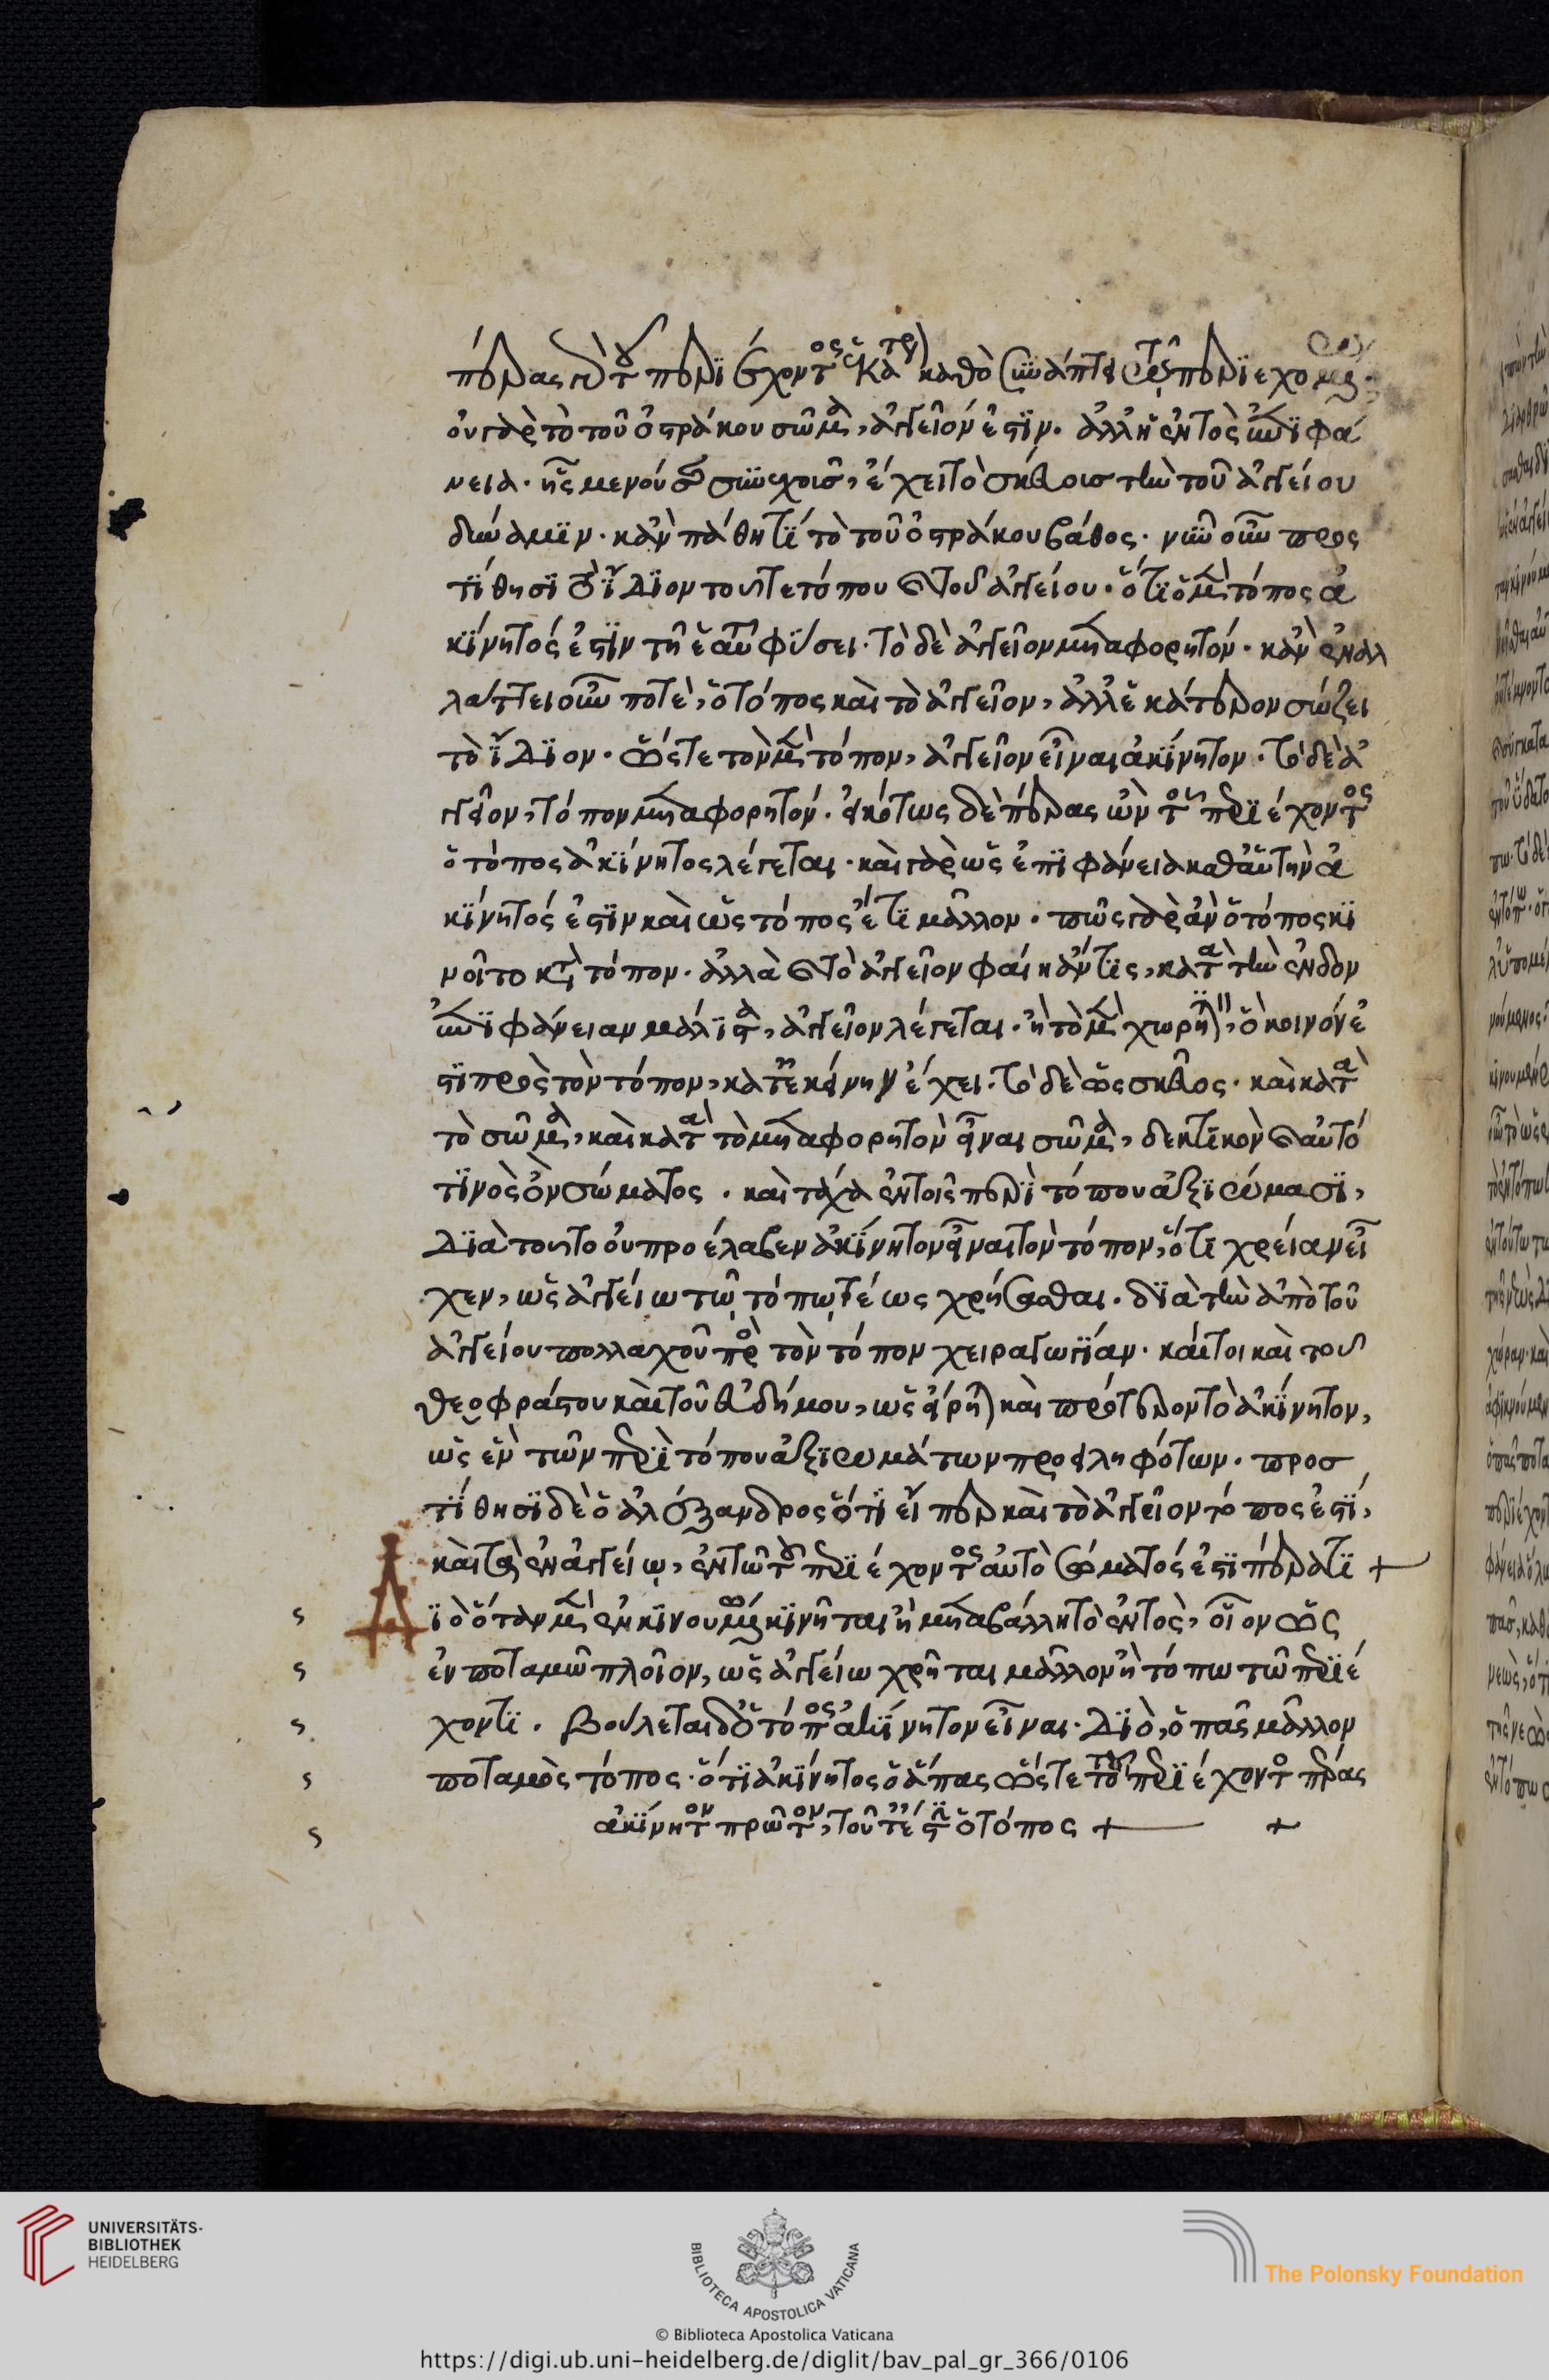 πέρας γὰρ τοῦ περιέχοντος ἑκάτερον καθὸ συνάπτει τῷ περιεχομένῳ.
οὐ γὰρ τὸ τοῦ ὀστράκου σῶμα, ἀγγεῖόν ἐστιν. ἀλλ' ἡ ἐντὸς ἐπιφά
νεια. ἧς μενούσης συνεχοῦς, ἔχει τὸ σκεῦος τὴν τοῦ ἀγγείου
δύναμιν. κἂν πάθῃ τι τὸ τοῦ ὀστράκου βάθος. νῦν οὖν προς
τίθησι τὸ ἴδιον τοῦ τε τόπου καὶ τοῦ ἀγγείου. ὅτι ὁ μὲν τόπος ἀ
κίνητός ἐστιν τῇ ἑαυτοῦ φύσει. τὸ δὲ ἀγγεῖον μεταφορητόν. κἂν ἐναλ
λάττει οὖν ποτὲ, ὁ τόπος καὶ τὸ ἀγγεῖον, ἀλλ' ἑκάτερον σώζει
τὸ ἴδιον. ὥστε τὸν μὲν τόπον, ἀγγεῖον εἶναι ἀκίνητον. τὸ δὲ ἀγ
γεῖον, τόπον μεταφορητόν. εἰκότως δὲ πέρας ὢν τοῦ περιέχοντος
ὁ τόπος ἀκίνητος λέγεται. καὶ γὰρ ὡς ἐπιφάνεια καθ' αὑτὴν ἀ
κίνητός ἐστιν καὶ ὡς τόπος ἔτι μᾶλλον. πῶς γὰρ ἂν ὁ τόπος κι
νοῖτο κατὰ τόπον. ἀλλὰ καὶ τὸ ἀγγεῖον φαίη ἄν τις, κατὰ τὴν ἔνδον
ἐπιφάνειαν μάλιστα, ἀγγεῖον λέγεται. ἢ τὸ μὲν χωρητικὸν, ὃ κοινόν ἐ
στι πρὸς τὸν τόπον, κατ' ἐκείνην ἔχει. τὸ δὲ ὡς σκεῦος. καὶ κατὰ
τὸ σῶμα, καὶ κατὰ τὸ μεταφορητὸν εἶναι σῶμα, δεκτικὸν καὶ αὐτό
τινος ὂν σώματος. καὶ τάχα ἐν τοῖς περὶ τόπου ἀξιώμασι,
διὰ τοῦτο οὐ προέλαβεν ἀκίνητον εἶναι τὸν τόπον, ὅτι χρείαν εἶ
χεν, ὡς ἀγγείω τῶ τόπῳ τέως χρήσασθαι. διὰ τὴν ἀπὸ τοῦ
ἀγγείου πολλαχοῦ πρὸς τὸν τόπον χειραγωγίαν. καίτοι καὶ τοῦ
θεοφράστου καὶ τοῦ εὐδήμου, ὡς εἴρηται καὶ πρότερον τὸ ἀκίνητον,
ὡς ἓν τῶν περὶ τόπου ἀξιωμάτων προσειληφότων. προσ
τίθησι δὲ ὁ ἀλέξανδρος ὅτι εἴπερ καὶ τὸ ἀγγεῖον τόπος ἐστί,
καὶ τὰ ἐν ἀγγείῳ, ἐν τῶ τοῦ περιέχοντος αὐτὸ σώματός ἐστι πέρατι +
Διὸ ὅταν μὲν ἐν κινουμένῳ κινῆται ἢ μεταβάλλη τὸ ἐντὸς, οἷον ὡς
ἐν ποταμῶ πλοῖον, ὡς ἀγγείω χρῆται μᾶλλον ἢ τόπω τῶ περιέ
χοντι. βούλεται δὲ ὁ τόπος ἀκίνητον εἶναι. διὸ, ὁ πᾶς μᾶλλον
ποταμὸς τόπος. ὅτι ἀκίνητος ὁ ἅπας ὥστε τὸ τοῦ περιέχοντος πέρας
ἀκίνητον πρῶτον, τοῦτ' ἔστιν ὁ τόπος + +
UNIVERSITÄTS-
BIBLIOTHEK
HEIDELBERG
BIBLIOTECA APOSTOLICA VATICANA
The Polonsky Foundation
© Biblioteca Apostolica Vaticana
https://digi.ub.uni-heidelberg.de/diglit/bav_pal_gr_366/0106